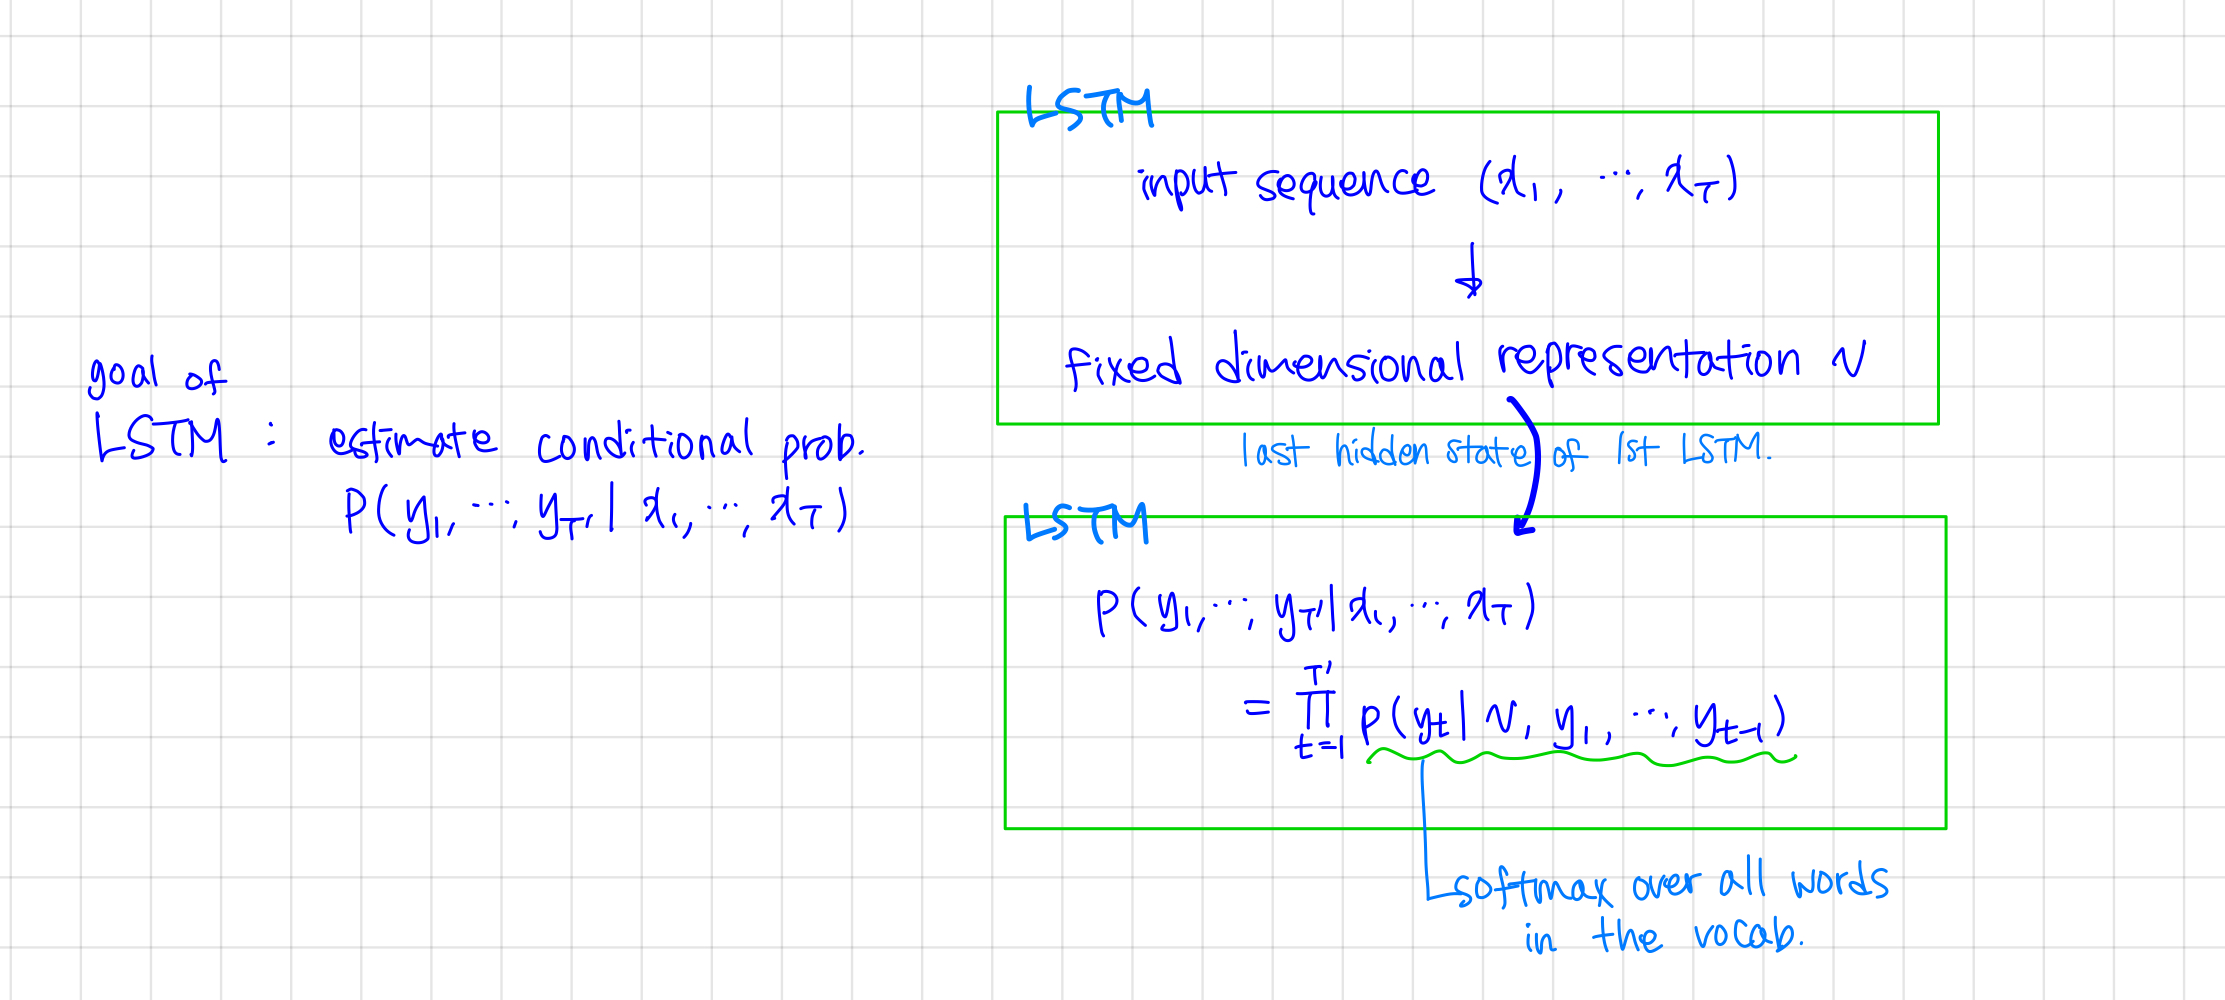 goal of
LSTM : estimate conditional prob.
P(y₁, ⋯, y_T' | x₁, ⋯, x_T)
LSTM
input sequence (x₁, ⋯, x_T)
↓
fixed dimensional representation v
last hidden state of 1st LSTM.
LSTM
P(y₁, ⋯, y_T' | x₁, ⋯, x_T)
= ∏_{t=1}^{T'} p(y_t | v, y₁, ⋯, y_{t-1})
softmax over all words
in the vocab.